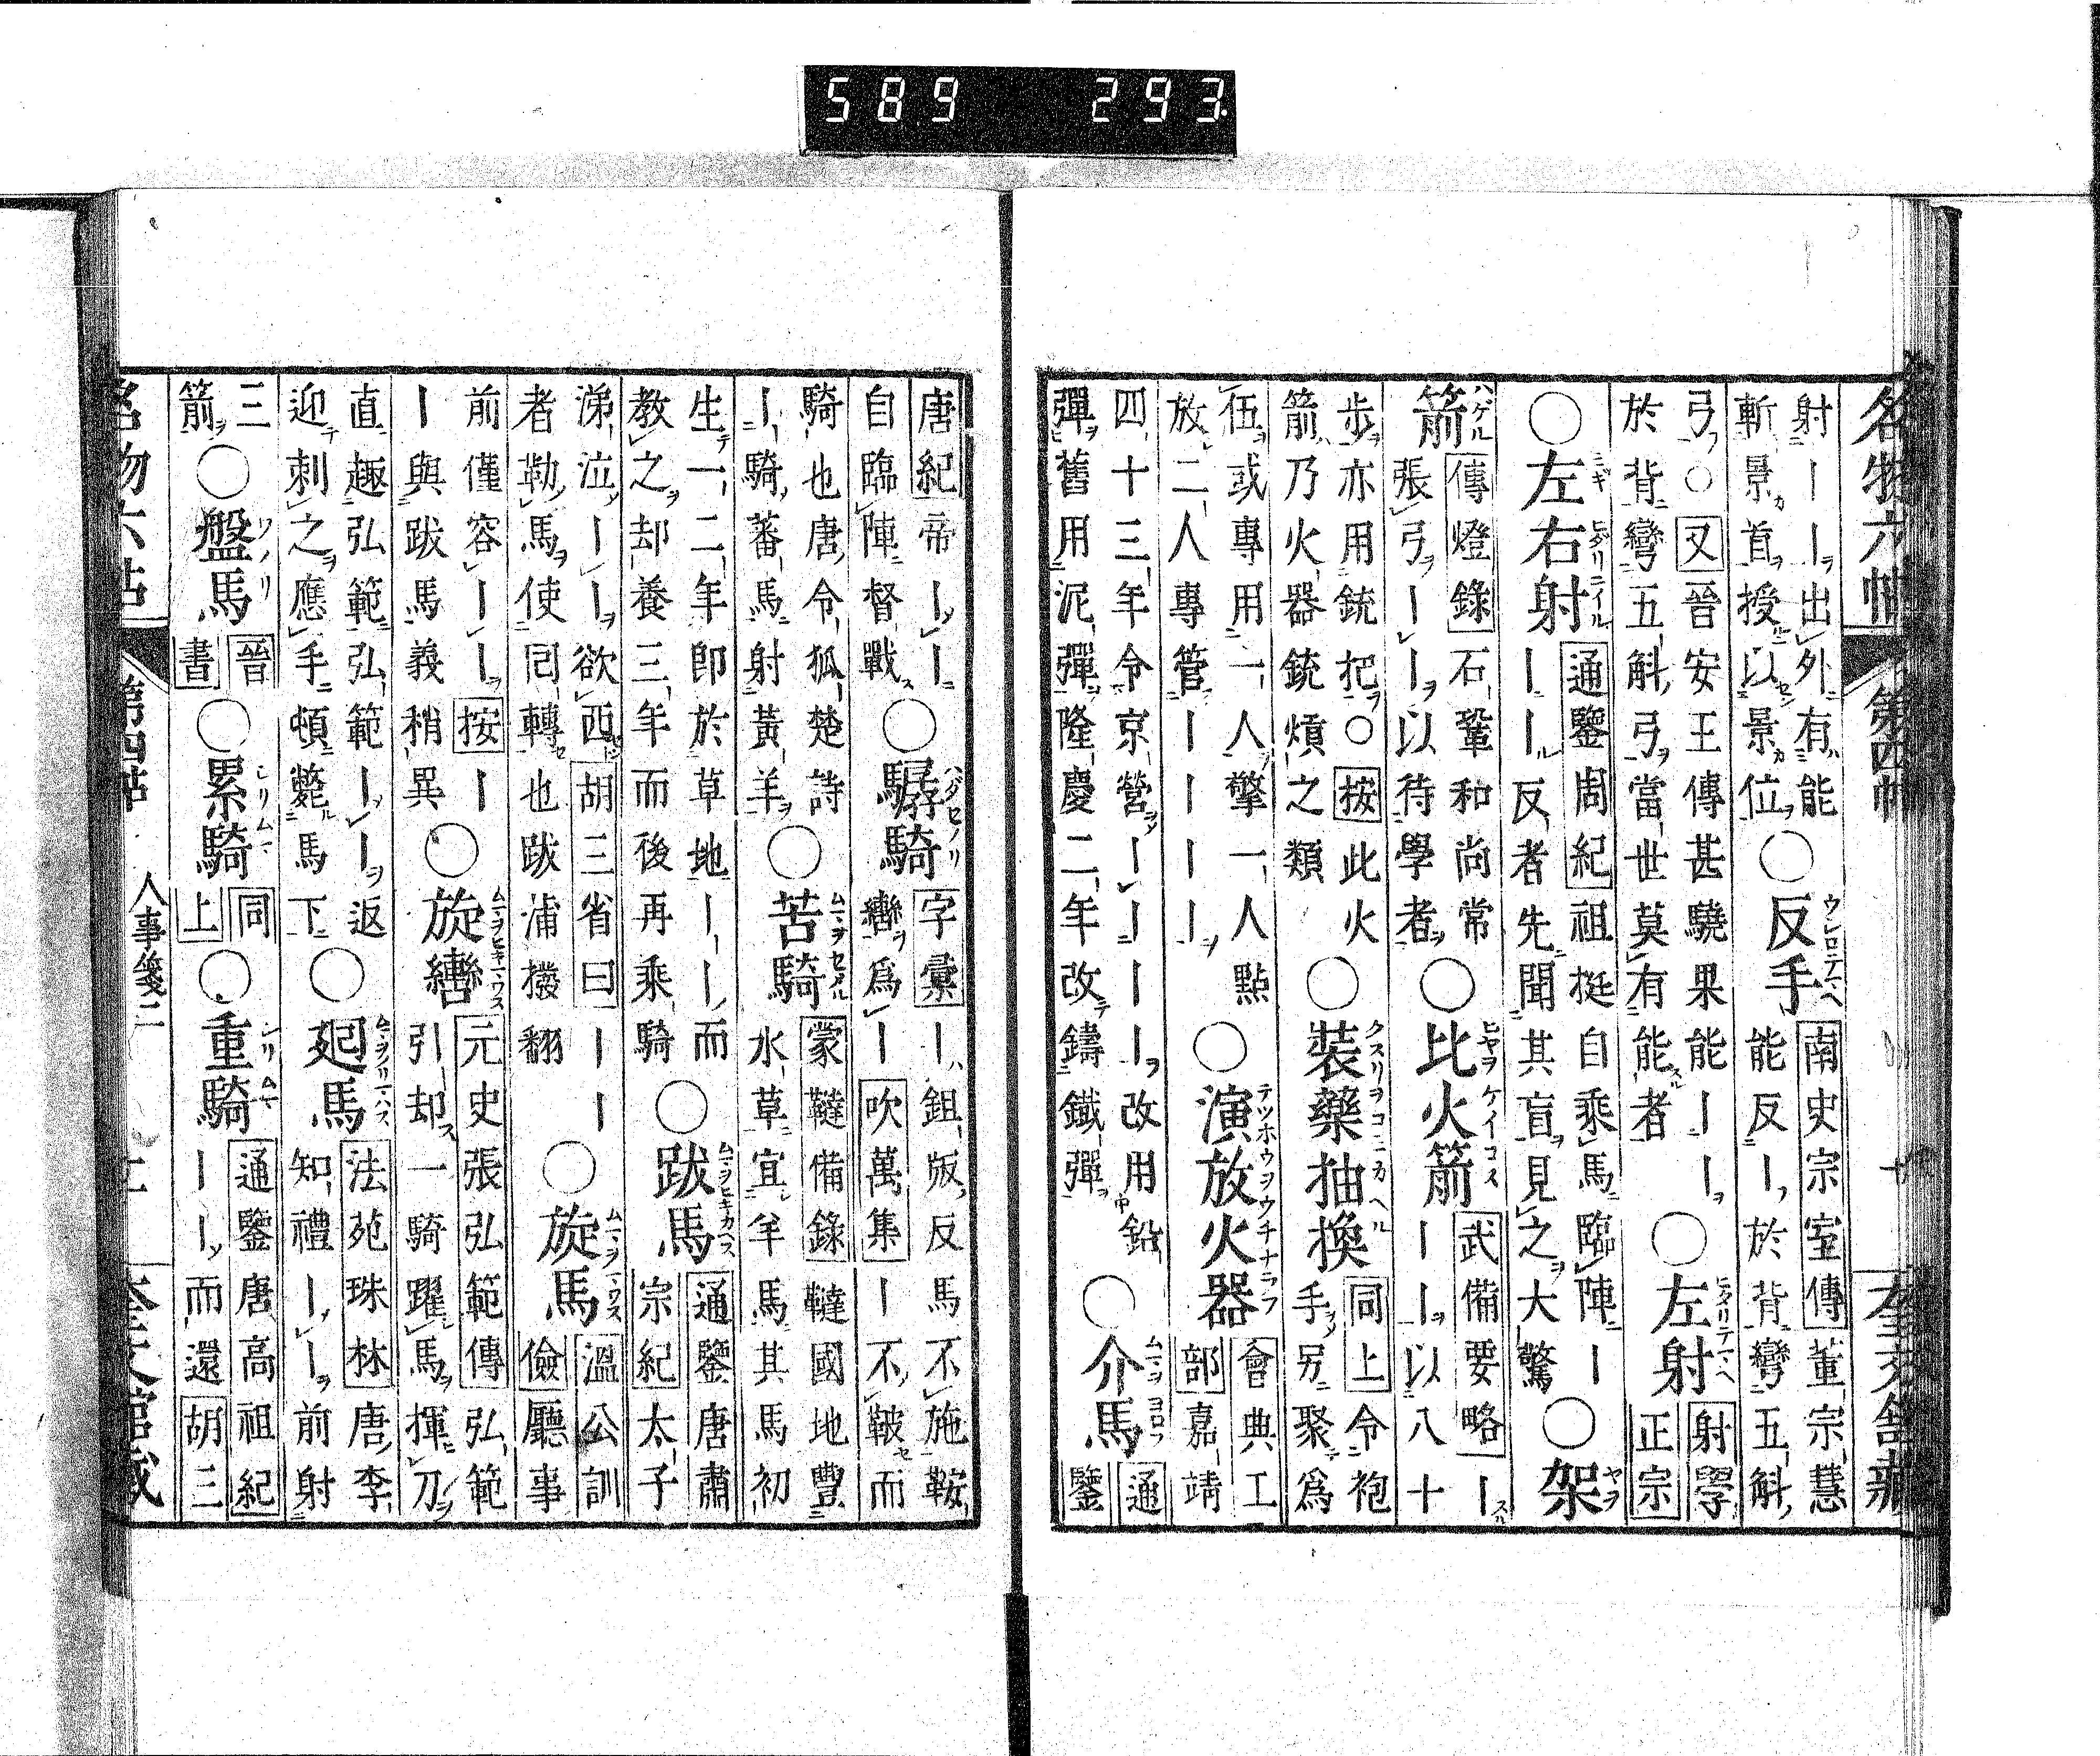 名物六帖 第四帖 奎文館藏
射丨丨出外有能
斬景首授以景位
○反手
南史宗室傳董宗慧
能反丨於背彎五斛
弓○又晉安王傳甚驍果能丨丨
於背彎五斛弓當世莫有能者
○左射
射學
正宗
○左右射
通鑒周紀祖挺自乘馬臨陣丨
丨丨反者先聞其盲見之大驚
○架
箭
傳燈錄石鞏和尚常
張弓丨丨以待學者
○比火箭
武備要略丨
丨丨以八十
步亦用銃把○按此火
箭乃火器銃熕之類
○裝藥抽換
同上令袍
手另聚為
伍或專用一人擎一人點
放二人專管丨丨丨丨
○演放火器
會典工
部嘉靖
四十三年令京營丨丨丨丨改用鉛
彈舊用泥彈隆慶二年改鑄鐵彈
○介馬
通
鑒
唐紀帝丨丨
自臨陣督戰
○驏騎
字彙丨鉏版反馬不施鞍
轡爲丨吹萬集丨不鞁而
騎也唐令狐楚詩
丨騎蕃馬射黃羊
○苦騎
蒙韃備錄韃國地豐
水草宜羊馬其馬初
生一二年卽於草地丨丨而
教之却養三年而後再乘騎
○跋馬
通鑒唐肅
宗紀太子
涕泣丨丨欲西胡三省曰丨丨
者勒馬使囘轉也跋浦撥翻
○旋馬
溫公訓
儉廳事
前僅容丨丨按丨
丨與跋馬義稍異
○旋轡
元史張弘範傳弘範
引却一騎躍馬揮刀
直趣弘範弘範丨丨返
迎刺之應手頓斃馬下
○廻馬
法苑珠林唐李
知禮丨丨前射
三
箭
○盤馬
晉
書
○累騎
同
上
○重騎
通鑒唐高祖紀
丨丨而還胡三
名物六帖 第四帖 人事箋二 奎文館藏
589 293